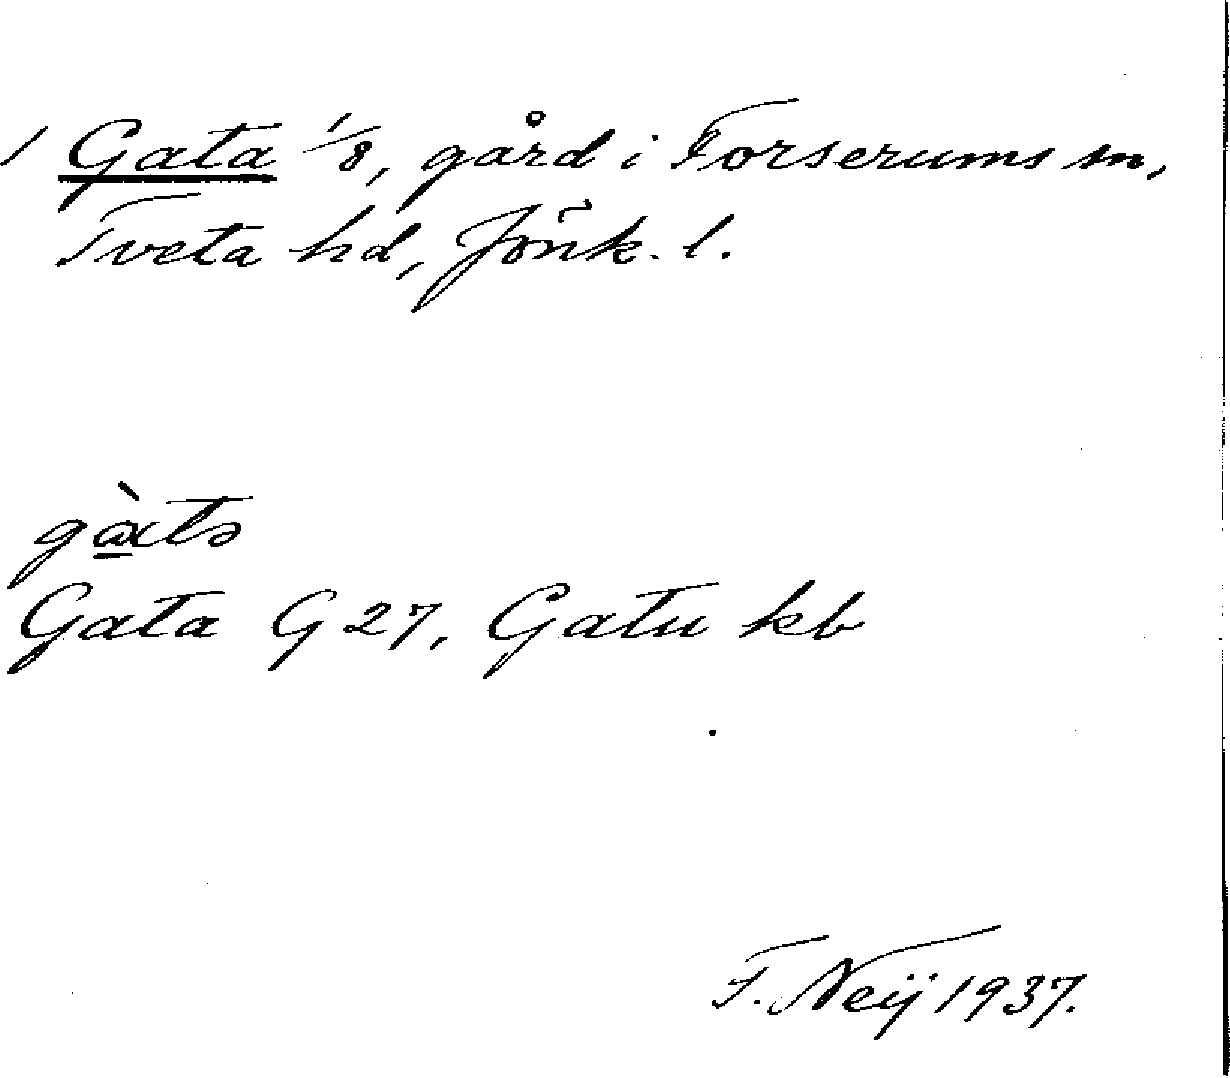 / Gata 1/8, gård i Forserums sn,
Tveta hd, Jönk. l.
Gata G 27, Gatu kb
F. Neij 1937.